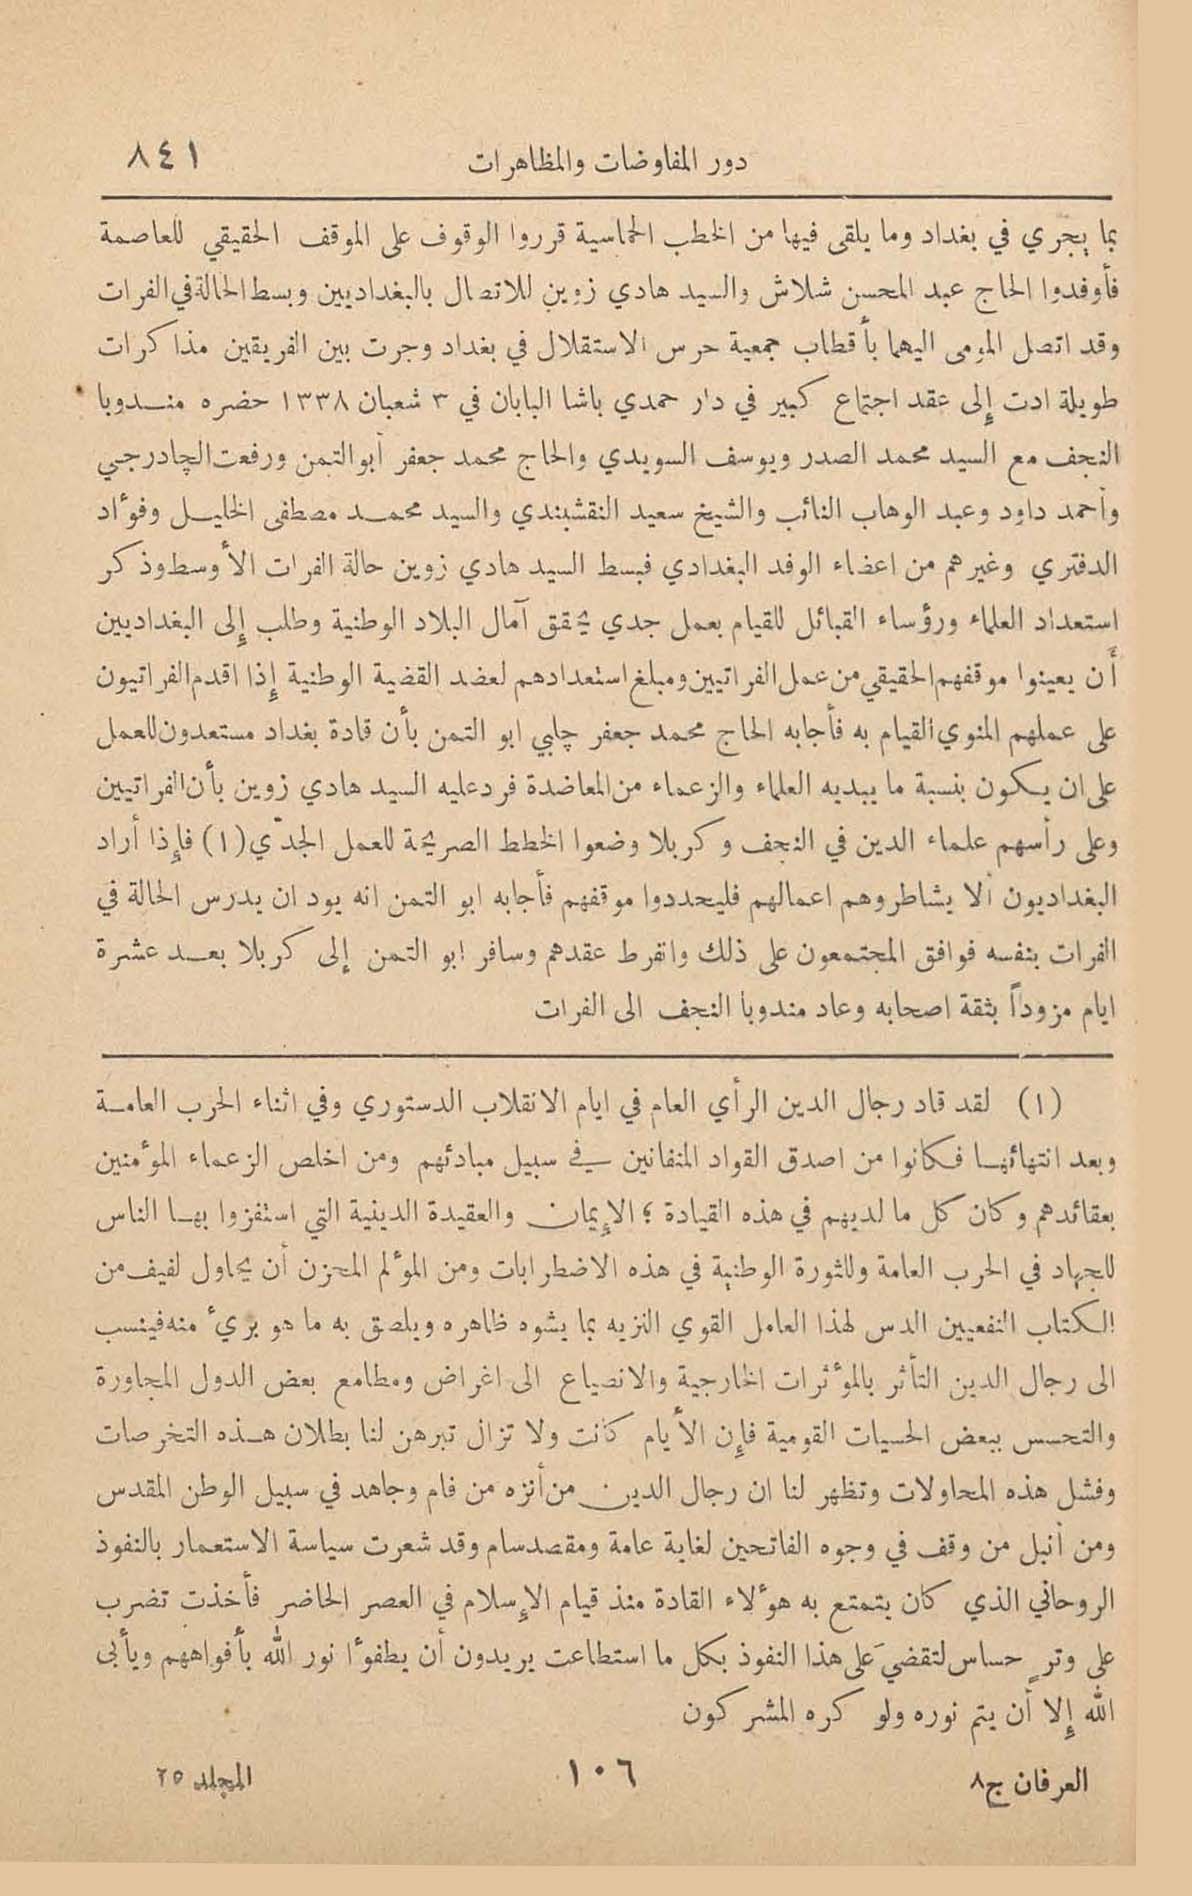 دور المفاوضات والمظاهرات ٨٤١
بما يجري في بغداد وما يلقى فيها من الخطب الحماسية قرروا الوقوف على الموقف الحقيقي للعاصمة
فأوفدوا الحاج عبد المحسن شلاش والسيد هادي زوين للاتصال بالبغداديين وبسط الحالة في الفرات
وقد اتصل المومى اليهما بأقطاب جمعية حرس الاستقلال في بغداد وجرت بين الفريقين مذاكرات
طويلة ادت إلى عقد اجتماع كبير في دار حمدي باشا البابان في ٣ شعبان ١٣٣٨ حضره مندوبا
النجف مع السيد محمد الصدر ويوسف السويدي والحاج محمد جعفر أبو التمن ورفعت الچادرجي
وأحمد داود وعبد الوهاب النائب والشيخ سعيد النقشبندي والسيد محمد مصطفى الخليل وفؤاد
الدفتري وغيرهم من اعضاء الوفد البغدادي فبسط السيد هادي زوين حالة الفرات الأوسط وذكر
استعداد العلماء ورؤساء القبائل للقيام بعمل جدي يحقق آمال البلاد الوطنية وطلب إلى البغداديين
أن يعينوا موقفهم الحقيقي من عمل الفراتيين ومبلغ استعدادهم لعضد القضية الوطنية إذا اقدم الفراتيون
على عملهم المنوي القيام به فأجابه الحاج محمد جعفر چلبي ابو التمن بأن قادة بغداد مستعدون للعمل
على ان يكون بنسبة ما يبديه العلماء والزعماء من المعاضدة فرد عليه السيد هادي زوين بأن الفراتيين
وعلى رأسهم علماء الدين في النجف وكربلا وضعوا الخطط الصريحة للعمل الجدّي (١) فإذا أراد
البغداديون ألا يشاطروهم اعمالهم فليحددوا موقفهم فأجابه ابو التمن انه يود ان يدرس الحالة في
الفرات بنفسه فوافق المجتمعون على ذلك وانفرط عقدهم وسافر ابو التمن إلى كربلا بعد عشرة
ايام مزوداً بثقة اصحابه وعاد مندوبا النجف الى الفرات
(١) لقد قاد رجال الدين الرأي العام في ايام الانقلاب الدستوري وفي اثناء الحرب العامة
وبعد انتهائها فكانوا من اصدق القواد المتفانين في سبيل مبادئهم ومن اخلص الزعماء المؤمنين
بعقائدهم وكان كل ما لديهم في هذه القيادة ؛ الإيمان والعقيدة الدينية التي استفزوا بها الناس
للجهاد في الحرب العامة وللثورة الوطنية في هذه الاضطرابات ومن المؤلم المحزن أن يحاول لفيف من
الكتاب النفعيين الدس لهذا العامل القوي النزيه بما يشوه ظاهره ويلصق به ما هو بريء منه فينسب
الى رجال الدين التأثر بالمؤثرات الخارجية والانصياع الى اغراض ومطامع بعض الدول المجاورة
والتحسس ببعض الحسيات القومية فإن الأيام كانت ولا تزال تبرهن لنا بطلان هذه التخرصات
وفشل هذه المحاولات وتظهر لنا ان رجال الدين من أنزه من قام وجاهد في سبيل الوطن المقدس
ومن أنبل من وقف في وجوه الفاتحين لغاية عامة ومقصد سام وقد شعرت سياسة الاستعمار بالنفوذ
الروحاني الذي كان يتمتع به هؤلاء القادة منذ قيام الإسلام في العصر الحاضر فأخذت تضرب
على وترٍ حساس لتقضي على هذا النفوذ بكل ما استطاعت يريدون أن يطفؤا نور الله بأفواههم ويأبى
الله إلا أن يتم نوره ولو كره المشركون
العرفان ج٨ ١٠٦ المجلد ٢٥